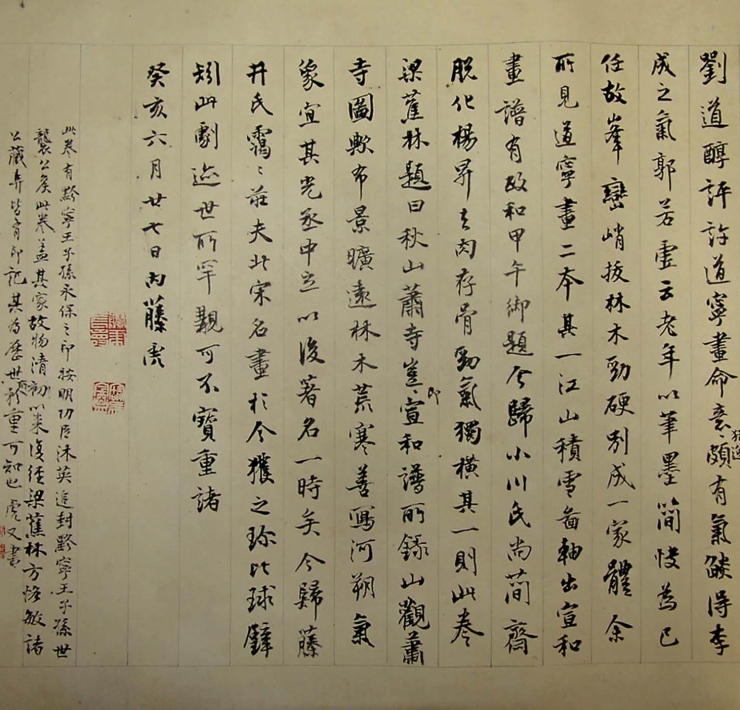 劉道醇評許道寧畫命意頗有氣燄得李
成之氣郭若虛云老年以筆墨簡快為己
任故峯巒峭拔林木勁硬別成一家體余
所見道寧畫二本其一江山積雪畐軸出宣和
畫譜有政和甲午御題今歸小川氏尚蕳齋
脫化楊昇去肉存骨勁氣獨橫其一則此卷
梁蕉林題曰秋山蕭寺豈即宣和譜所錄山觀蕭
寺圖歟布景曠遠林木荒寒善寫河朔氣
象宜其光丞中立以後著名一時矣今歸藤
井氏靄〻莊夫此宋名畫於今獲之珍比球璧
矧此劇迹世所罕觀可不寶重諸
癸亥六月廿七日內藤虎
此卷有黔寧王子孫永保之印按明功臣沐英追封黔寧王子孫世
襲公矦此卷蓋其家故物清初以來復經梁蕉林方恪敏諸
公藏弆皆有印記其為歷世所珍重可知也 虎又書